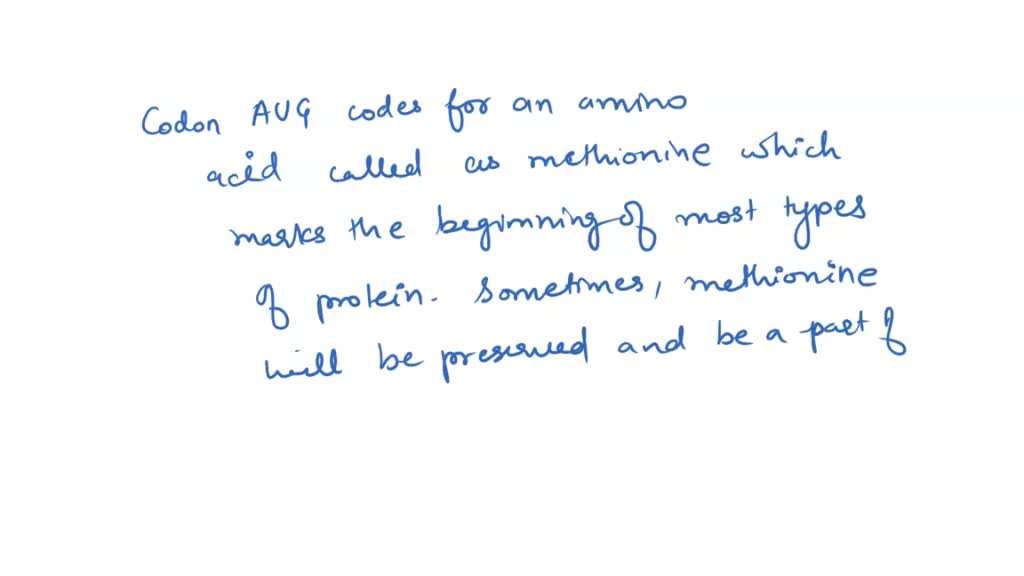 Codon AUG codes for an amino
acid called as methionine which
marks the beginning of most types
of protein. Sometimes, methionine
will be preserved and be a part of